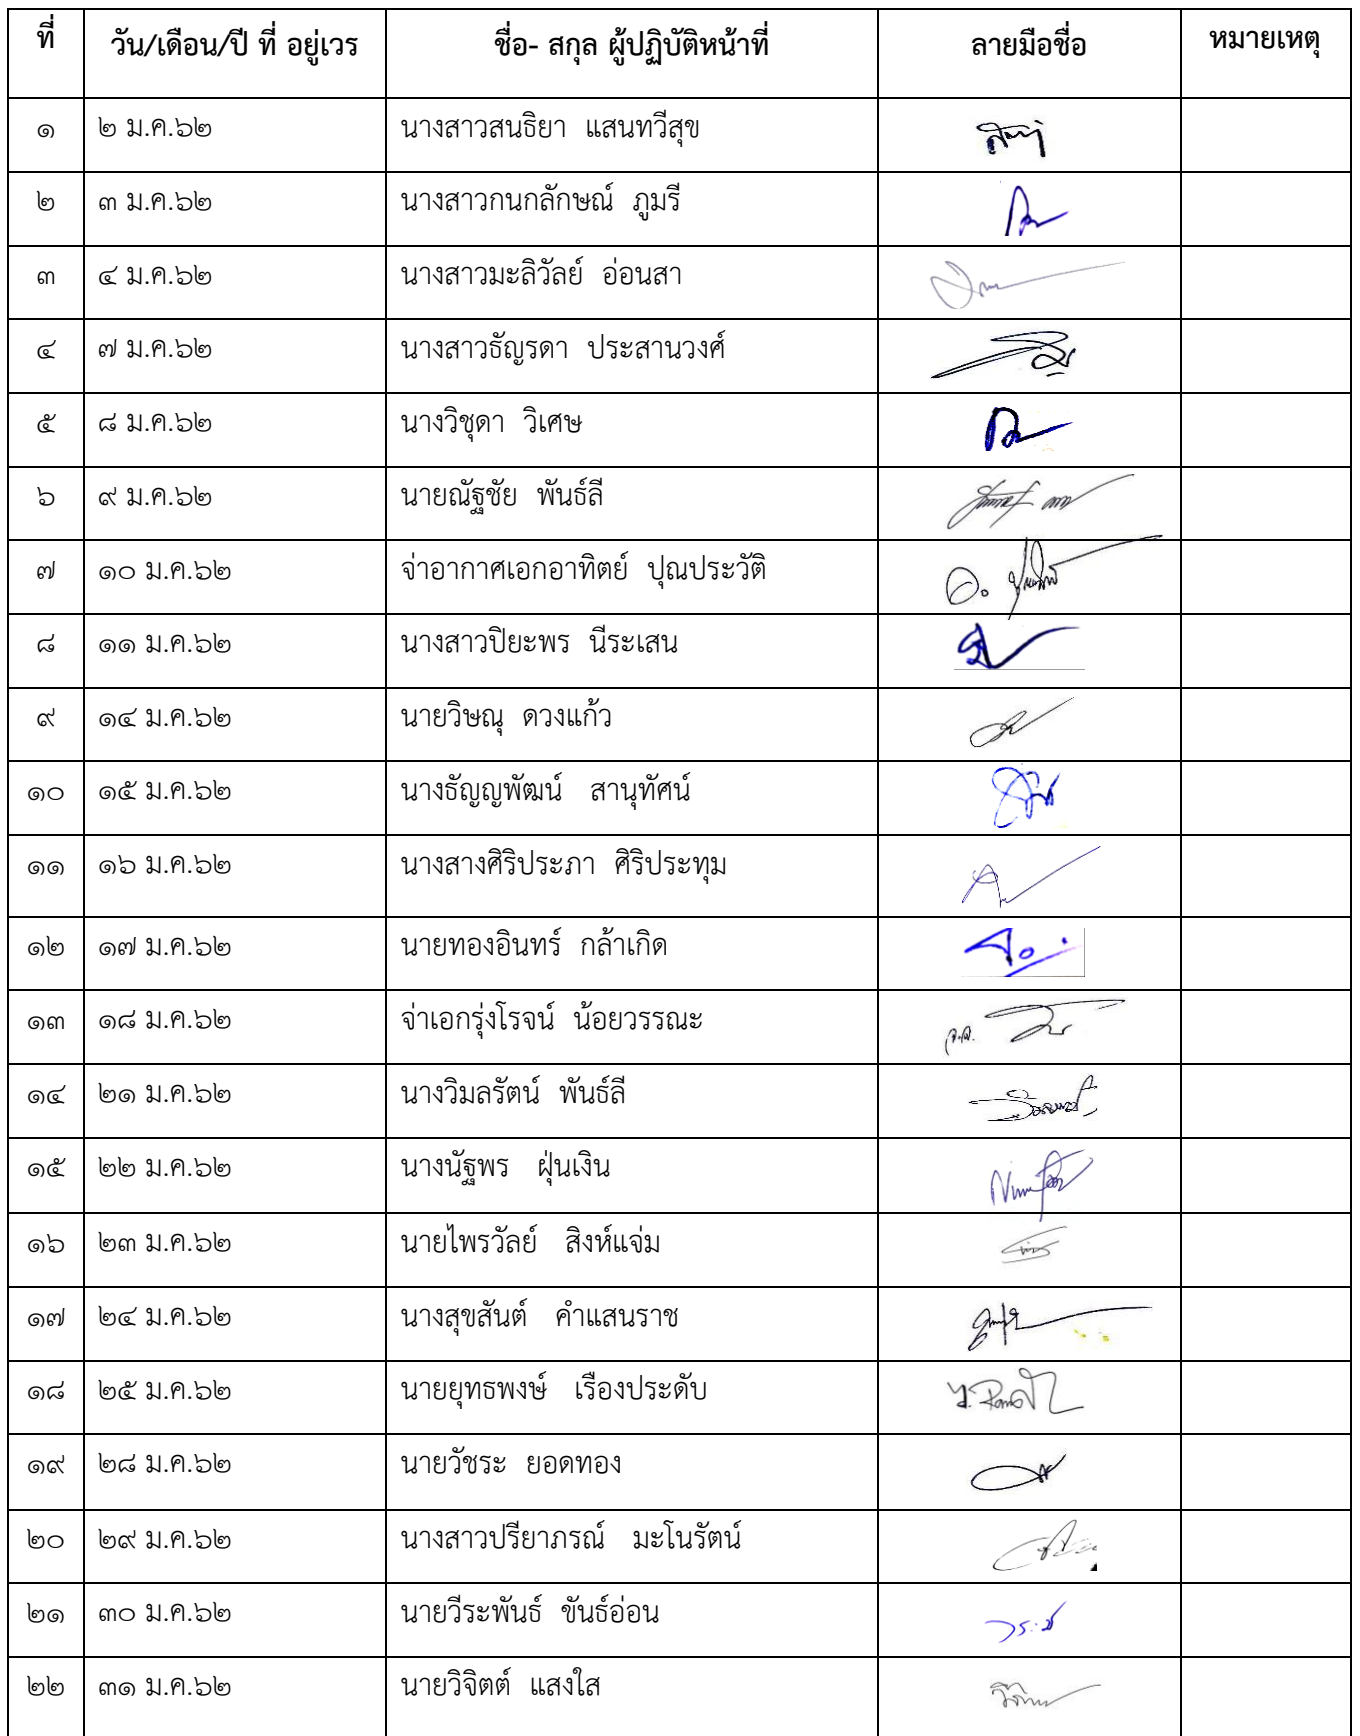 ที่ วัน/เดือน/ปี ที่ อยู่เวร ชื่อ- สกุล ผู้ปฏิบัติหน้าที่ ลายมือชื่อ หมายเหตุ
๑ ๒ ม.ค.๖๒ นางสาวสนธิยา แสนทวีสุข
๒ ๓ ม.ค.๖๒ นางสาวกนกลักษณ์ ภูมรี
๓ ๔ ม.ค.๖๒ นางสาวมะลิวัลย์ อ่อนสา
๔ ๗ ม.ค.๖๒ นางสาวธัญรดา ประสานวงศ์
๕ ๘ ม.ค.๖๒ นางวิชุดา วิเศษ
๖ ๙ ม.ค.๖๒ นายณัฐชัย พันธ์ลี
๗ ๑๐ ม.ค.๖๒ จ่าอากาศเอกอาทิตย์ ปุณประวัติ
๘ ๑๑ ม.ค.๖๒ นางสาวปิยะพร นีระเสน
๙ ๑๔ ม.ค.๖๒ นายวิษณุ ดวงแก้ว
๑๐ ๑๕ ม.ค.๖๒ นางธัญญพัฒน์ สานุทัศน์
๑๑ ๑๖ ม.ค.๖๒ นางสางศิริประภา ศิริประทุม
๑๒ ๑๗ ม.ค.๖๒ นายทองอินทร์ กล้าเกิด
๑๓ ๑๘ ม.ค.๖๒ จ่าเอกรุ่งโรจน์ น้อยวรรณะ
๑๔ ๒๑ ม.ค.๖๒ นางวิมลรัตน์ พันธ์ลี
๑๕ ๒๒ ม.ค.๖๒ นางนัฐพร ฝุ่นเงิน
๑๖ ๒๓ ม.ค.๖๒ นายไพรวัลย์ สิงห์แจ่ม
๑๗ ๒๔ ม.ค.๖๒ นางสุขสันต์ คำแสนราช
๑๘ ๒๕ ม.ค.๖๒ นายยุทธพงษ์ เรืองประดับ
๑๙ ๒๘ ม.ค.๖๒ นายวัชระ ยอดทอง
๒๐ ๒๙ ม.ค.๖๒ นางสาวปรียาภรณ์ มะโนรัตน์
๒๑ ๓๐ ม.ค.๖๒ นายวีระพันธ์ ขันธ์อ่อน
๒๒ ๓๑ ม.ค.๖๒ นายวิจิตต์ แสงใส